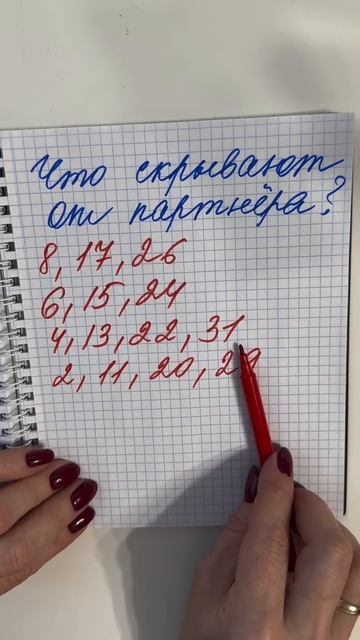 Что скрывают
от партнёра?
8, 17, 26
6, 15, 24
4, 13, 22, 31
2, 11, 20, 29